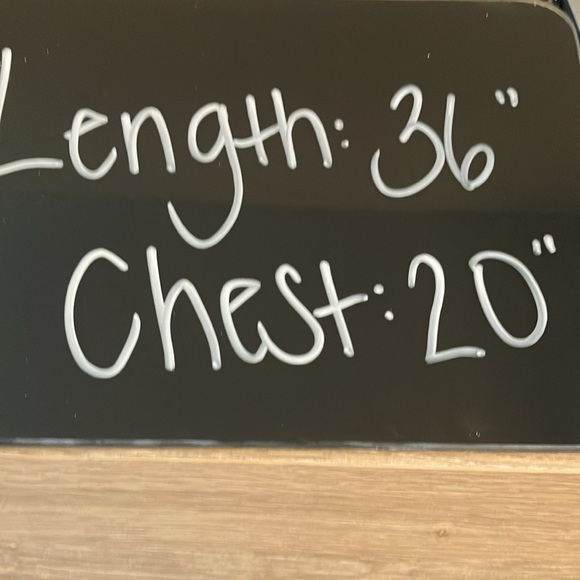 Length: 36"
Chest: 20"